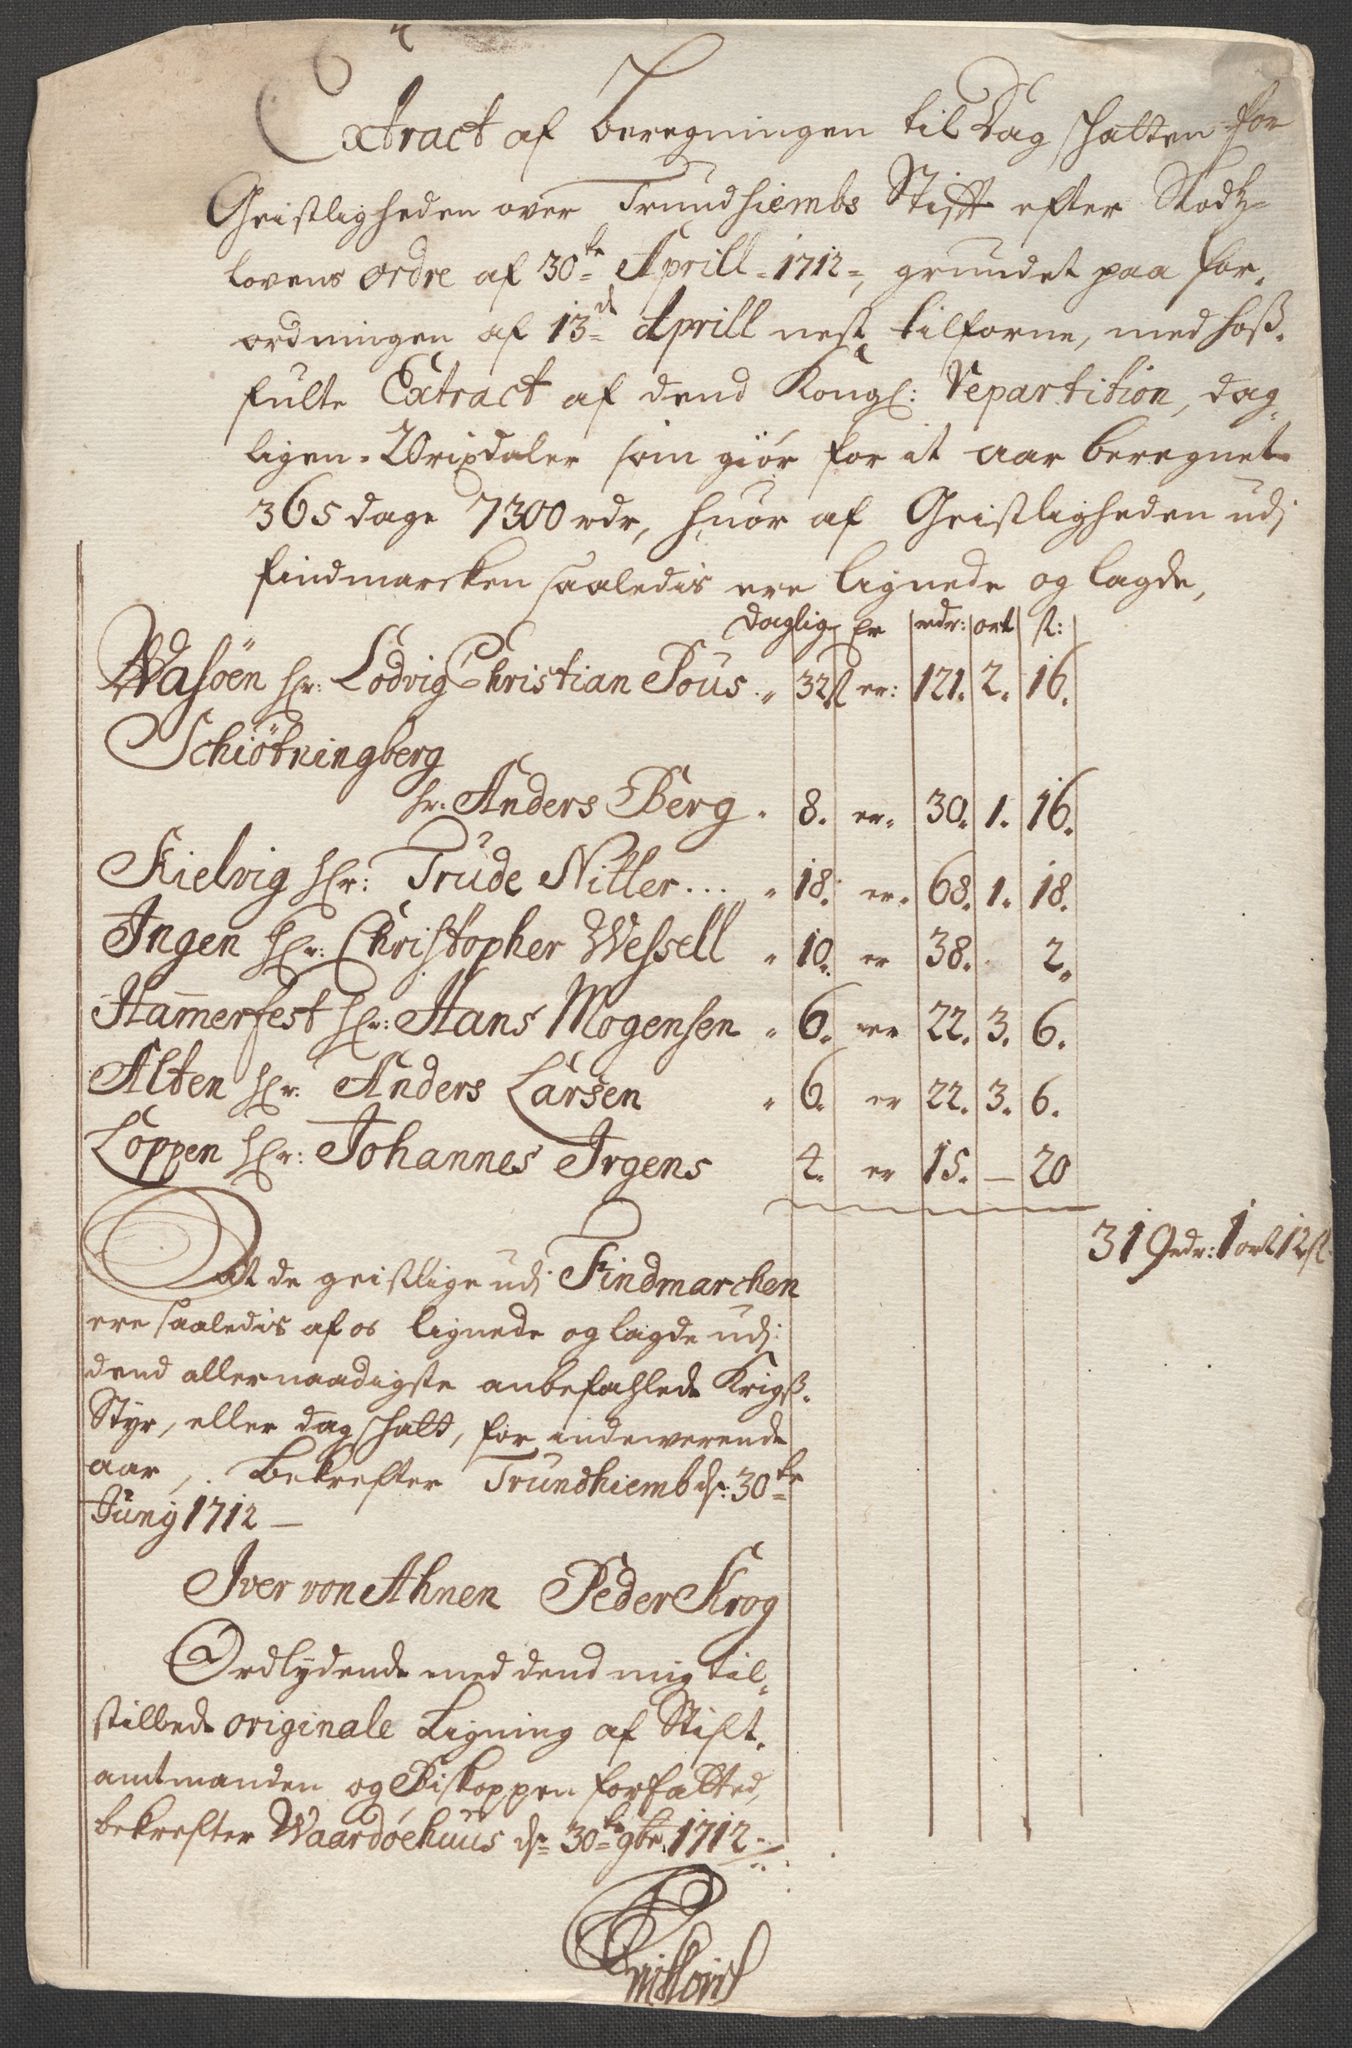 Extract af beregningen til Dag schatten for
Geistligheden over Trundhiembs Stift efter Slodtz-
lovens ordre af 30te Aprill 1712, grundet paa for-
ordningen af 13de Aprill nest tilforne, med hoß-
fulte Extract af dend Kongl: Repartition, dag-
ligen 20 rixdaler som giør for it aar beregnet
365 dage 7300 rdr, huor af Geistligheden udj
findmarcken saaledis ere lignede og lagde,
daglig er rdr: ort ß:
Wasöen hr: Lodvig Christian Pous 32ß er: 121. 2. 16.
Schiötningberg
hr: Anders Berg 8. er 30. 1. 16.
Kielvig hr: Trude Nitter... 18. er 68. 1. 18.
Ingen hr: Christopher Wessell 10. er 38. 2.
Hammerfest hr: Hans Mogensen 6. er 22. 3. 6.
Alten hr: Anders Larsen 6. er 22. 3. 6.
Loppen hr: Johannes Irgens 4. er 15. — 20
319 rdr: 1 ort 12 ß
At de geistlige udj Findmarchen
ere saaledis af os lignede og lagde udj
dend allernaadigste anbefahlede Krigß-
Styr, eller dag schatt, for indewerende
aar, bekrefter Trundhiemb d: 30te
Junij 1712 —
Iver von Ahnen Peder Krog
Ordlydende med dend mig til-
stillede originale Ligning af Stift-
amtmanden og Biskoppen forfatted,
bekrefter Waardøehuus d: 30te 9br. 1712